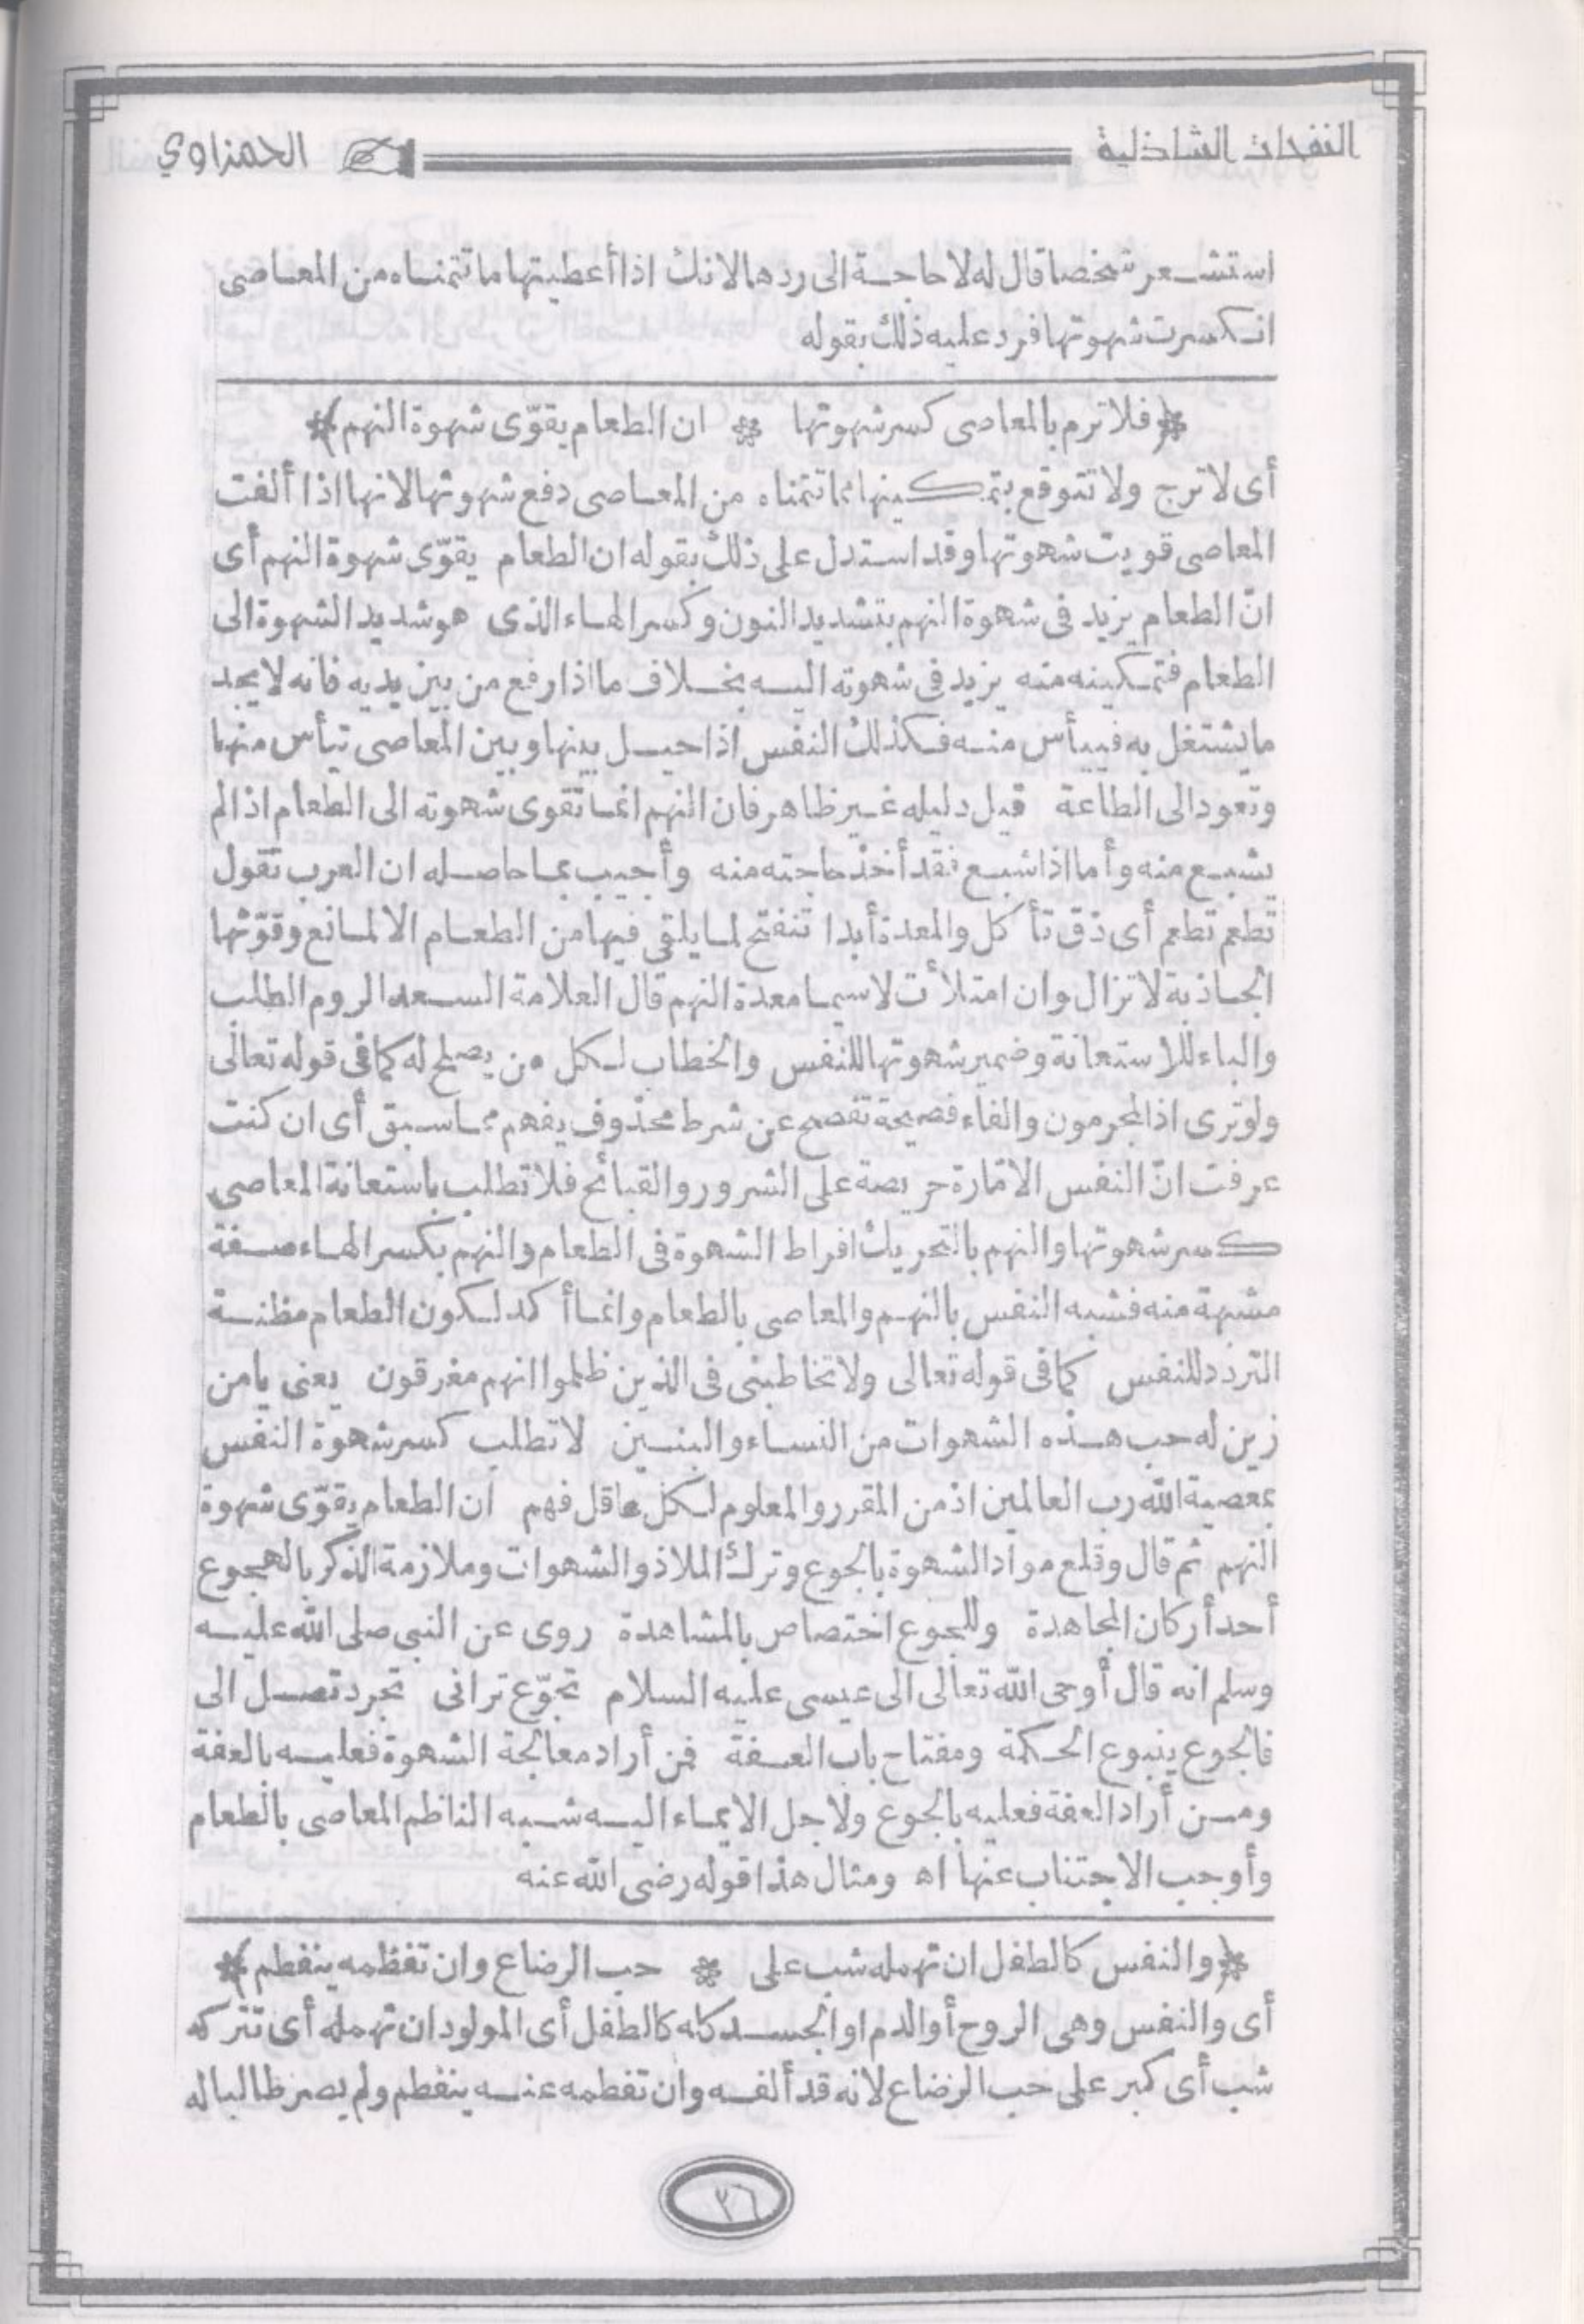 النفحات الشاذلية
الحمزاوي
استشعر شخصا قال له لا حاجة الى ردها لانك اذا أعطيتها ما تتمناه من المعاصى
انكسرت شهوتها فرد عليه ذلك بقوله
﴿فلا ترم بالمعاصى كسر شهوتها * ان الطعام يقوّى شهوة النهم﴾
أى لا ترج ولا تتوقع بتمكينها مما تتمناه من المعاصى دفع شهوتها لانها اذا ألفت
المعاصى قويت شهوتها وقد استدل على ذلك بقوله ان الطعام يقوّى شهوة النهم أى
انّ الطعام يزيد فى شهوة النهم بتشديد النون وكسر الهاء الذى هو شديد الشهوة الى
الطعام فتمكينه منه يزيد فى شهوته اليه بخلاف ما اذا رفع من بين يديه فانه لا يجد
ما يشتغل به فييأس منه فكذلك النفس اذا حيل بينها وبين المعاصى تيأس منها
وتعود الى الطاعة قيل دليله غير ظاهر فان النهم انما تقوى شهوته الى الطعام اذا لم
يشبع منه وأما اذا شبع فقد أخذ حاجته منه وأجيب بما حاصله ان العرب تقول
تطعم تطعم أى ذق تأكل والمعدة أبدا تنفتح لما يلقى فيها من الطعام الا لمانع وقوّتها
الجاذبة لا تزال وان امتلأت لا سيما معدة النهم قال العلامة السعد الروم الطلب
والباء للاستعانة وضمير شهوتها للنفس والخطاب لكل من يصلح له كما فى قوله تعالى
ولو ترى اذ المجرمون والفاء فصيحة تفصح عن شرط محذوف يفهم مما سبق أى ان كنت
عرفت انّ النفس الامّارة حريصة على الشرور والقبائح فلا تطلب باستعانة المعاصى
كسر شهوتها والنهم بالتحريك افراط الشهوة فى الطعام والنهم بكسر الهاء صفة
مشبهة منه فشبه النفس بالنهم والمعاصى بالطعام وانما أكد لكون الطعام مظنة
التردد للنفس كما فى قوله تعالى ولا تخاطبنى فى الذين ظلموا انهم مغرقون يعنى يا من
زين له حب هذه الشهوات من النساء والبنين لا تطلب كسر شهوة النفس
بمعصية الله رب العالمين اذ من المقرر والمعلوم لكل عاقل فهم ان الطعام يقوّى شهوة
النهم ثم قال وقلع مواد الشهوة بالجوع وترك الملاذ والشهوات وملازمة الذكر بالهجوع
أحد أركان المجاهدة وللجوع اختصاص بالمشاهدة روى عن النبى صلى الله عليه
وسلم انه قال أوحى الله تعالى الى عيسى عليه السلام تجوّع ترانى تجرد تصل الى
فالجوع ينبوع الحكمة ومفتاح باب العفة فمن أراد معالجة الشهوة فعليه بالعفة
ومن أراد العفة فعليه بالجوع ولاجل الايماء اليه شبه الناظم المعاصى بالطعام
وأوجب الاجتناب عنها اه ومثال هذا قوله رضى الله عنه
﴿والنفس كالطفل ان تهمله شب على * حب الرضاع وان تفطمه ينفطم﴾
أى والنفس وهى الروح أو الدم او الجسد كله كالطفل أى المولود ان تهمله أى تتركه
شب أى كبر على حب الرضاع لانه قد ألفه وان تفطمه عنه ينفطم ولم يصر طالبا له
٢٦